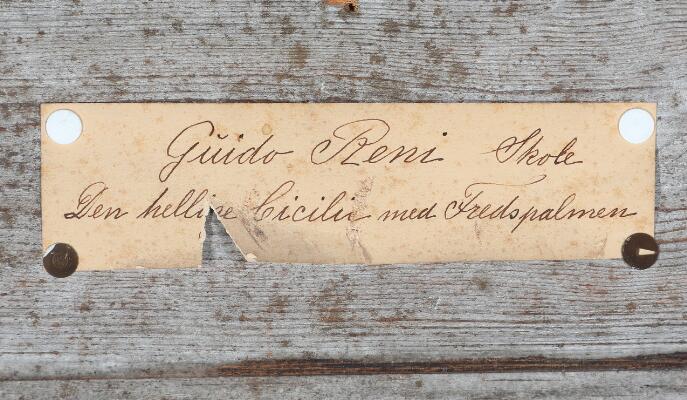 Guido Reni Skole
Den hellige Cicilie med Fredspalmen